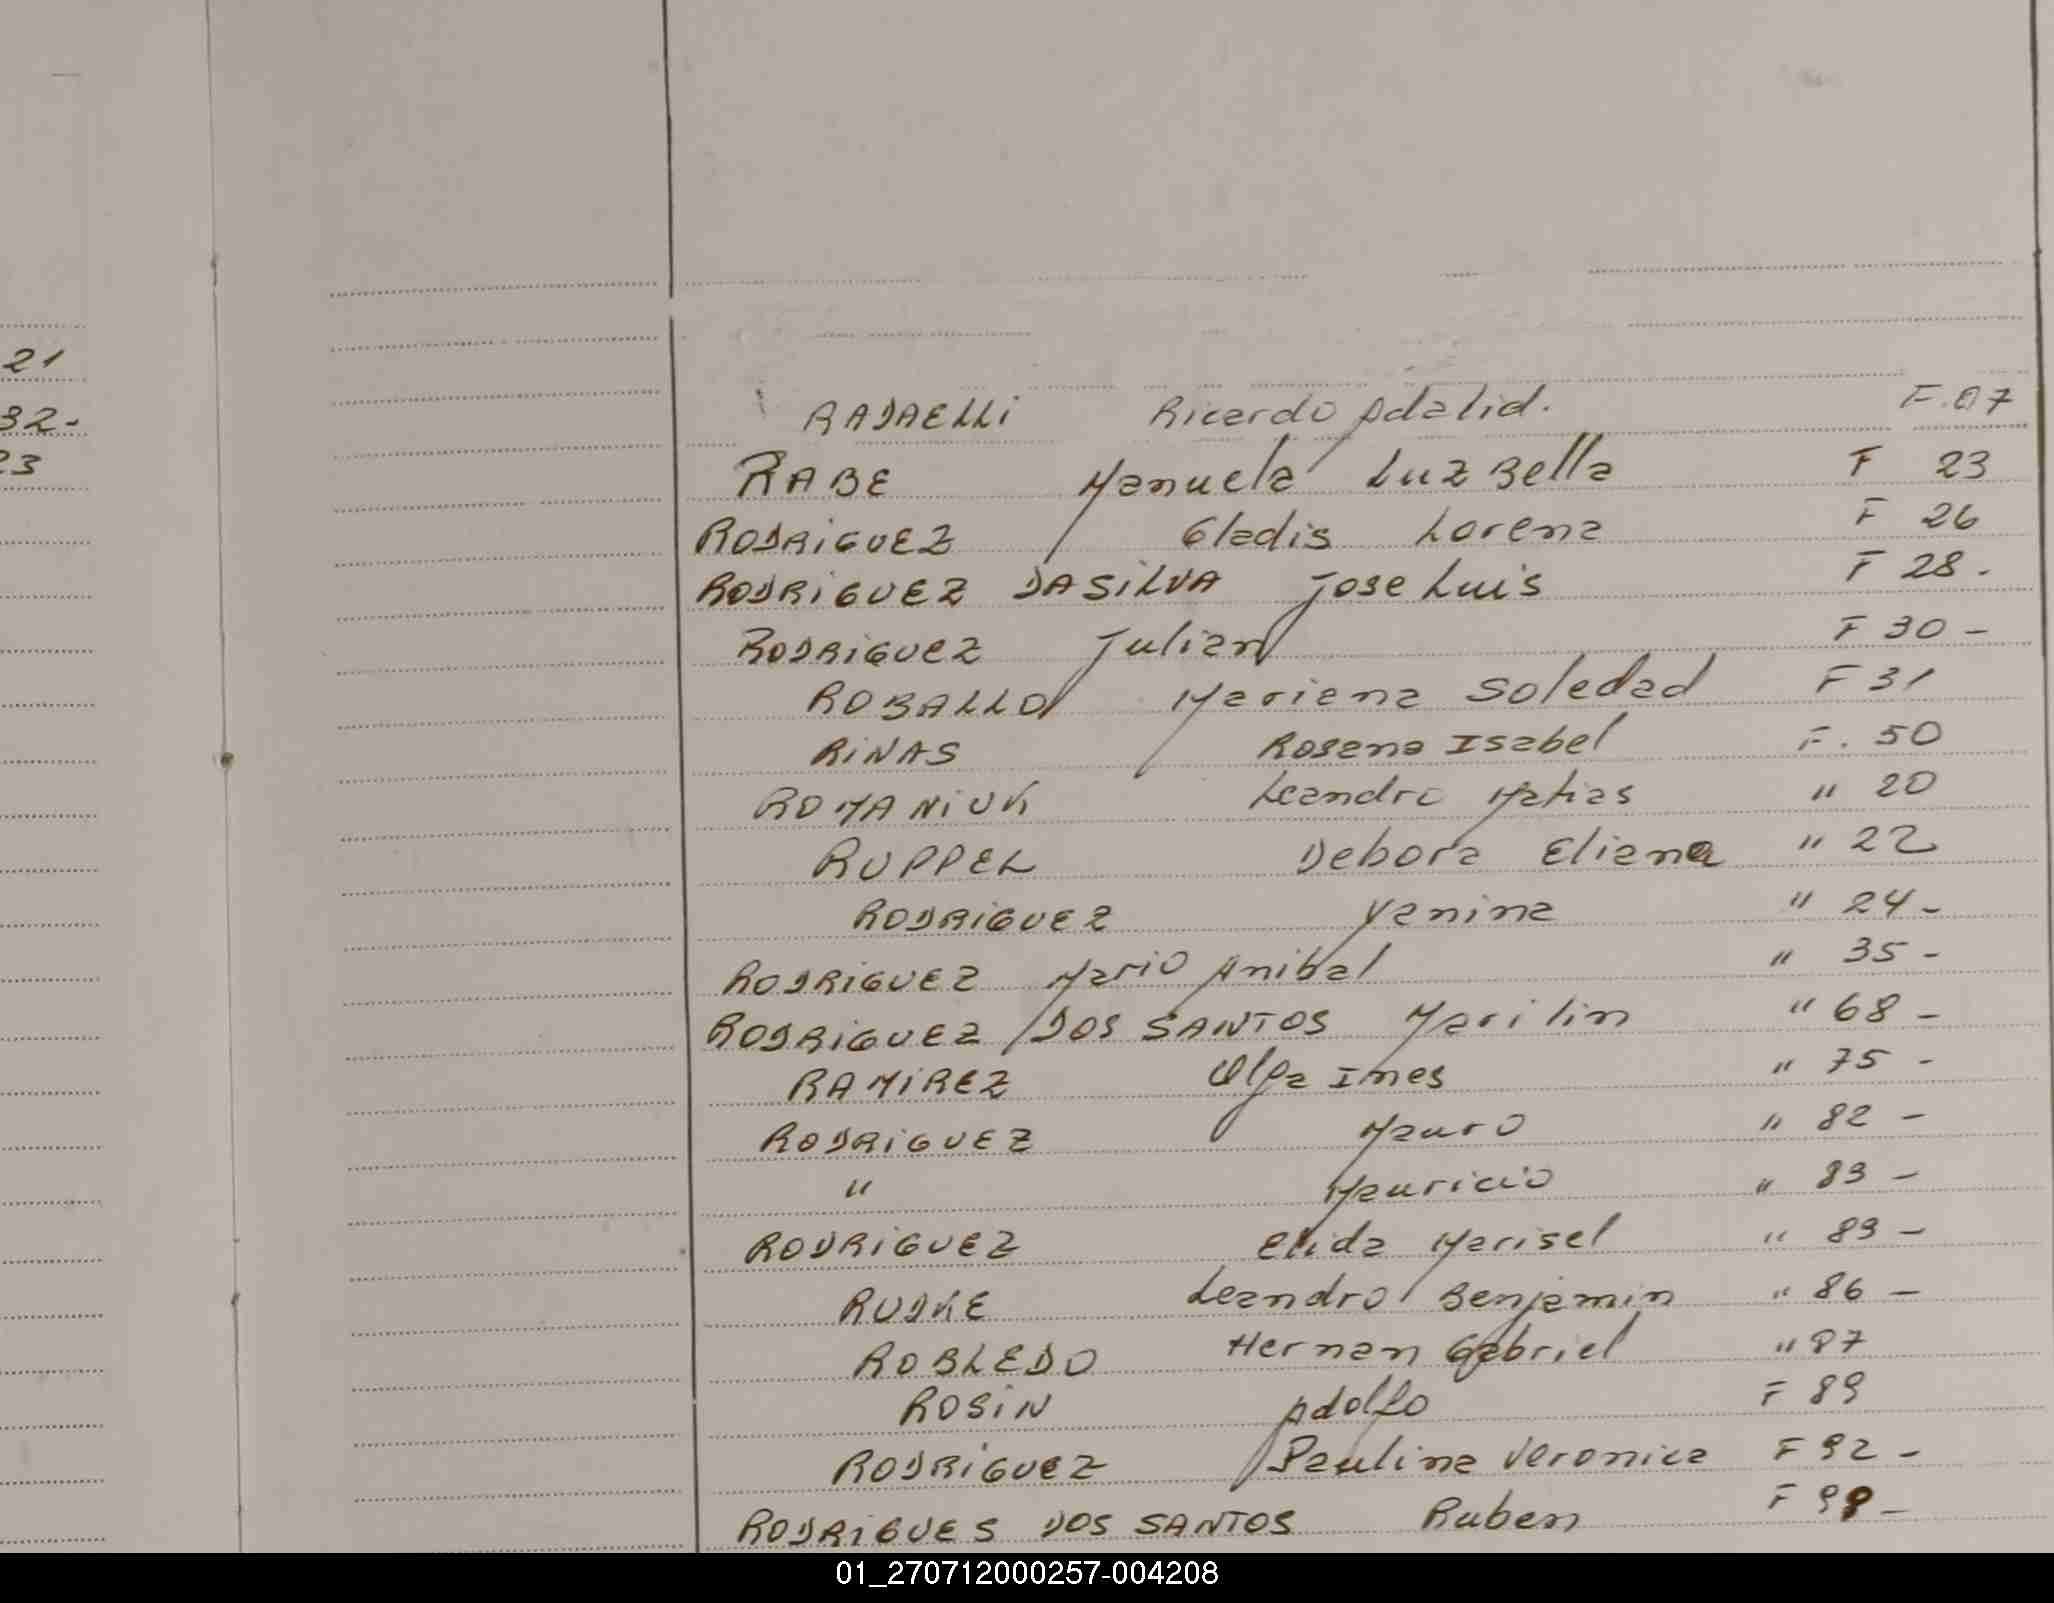 21
32-
23
RADAELLI Ricardo Adalid. F.07
RABE Manuela Luz Bella F 23
RODRIGUEZ Gladis Lorena F 26
RODRIGUEZ DASILVA Jose Luis F 28.
RODRIGUEZ Julian F 30-
ROBALLO Mariana Soledad F 31
RINAS Rosana Isabel F. 50
ROMANIUK Leandro Matias " 20
RUPPEL Debora Eliana " 22
RODRIGUEZ Yanina " 24-
RODRIGUEZ Mario Anibal " 35-
RODRIGUEZ DOS SANTOS Marilin " 68-
RAMIREZ Olga Ines " 75-
RODRIGUEZ Mauro " 82-
" Mauricio " 83-
RODRIGUEZ Elida Marisel " 83-
RUDKE Leandro Benjamin " 86-
ROBLEDO Hernan Gabriel " 87
ROSIN Adolfo F 89
RODRIGUEZ Paulina Veronica F 92-
RODRIGUES DOS SANTOS Ruben F 99-
01_270712000257-004208